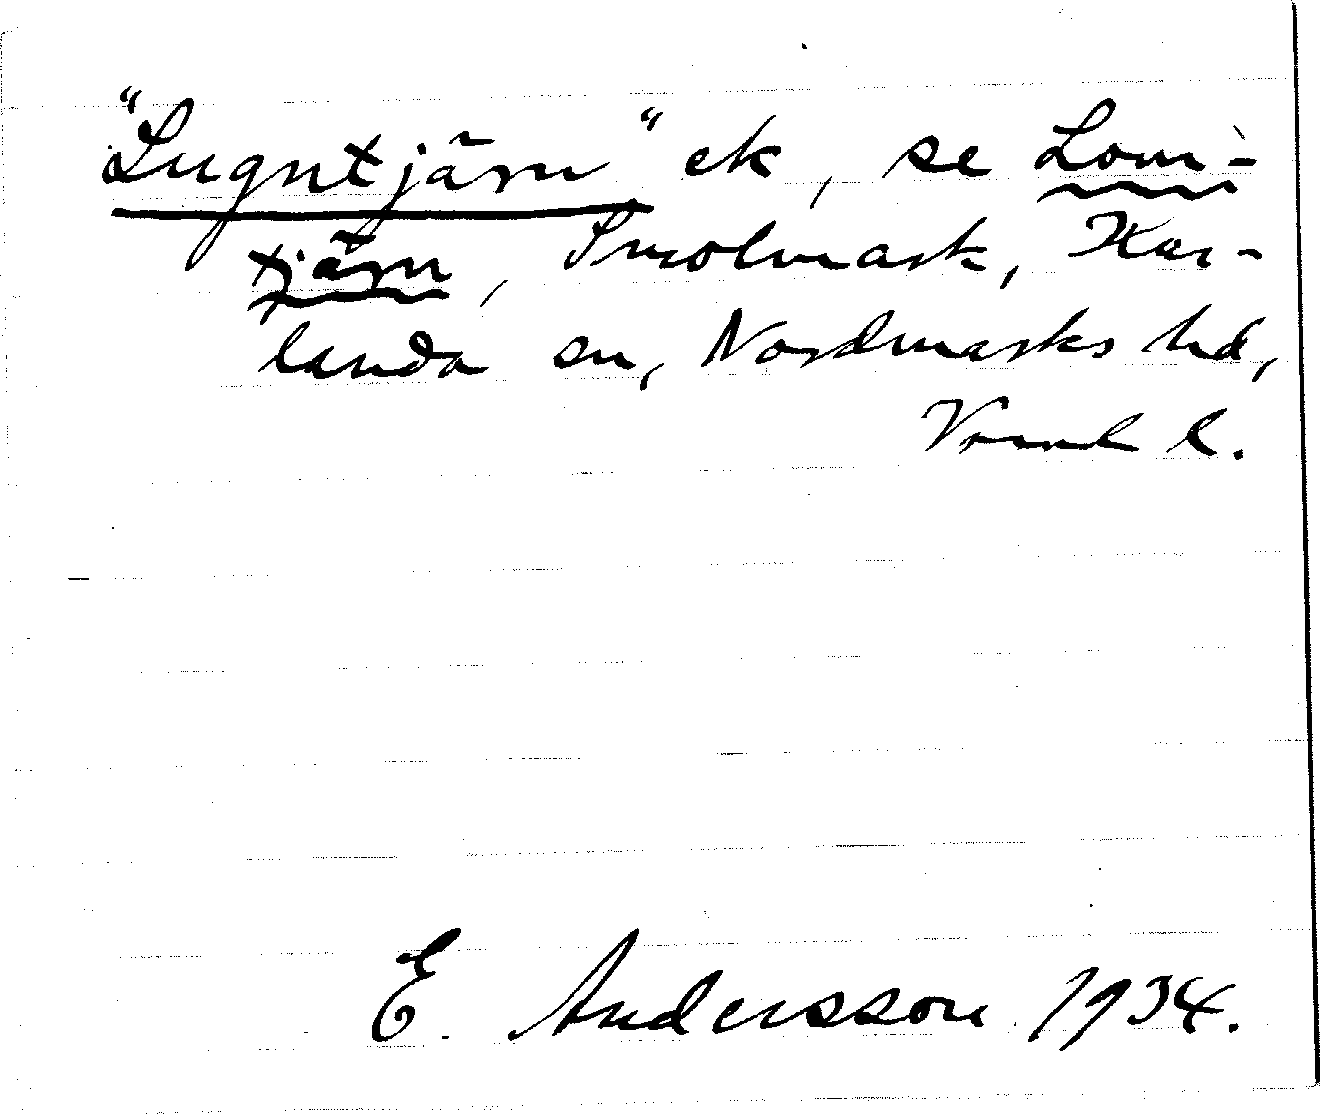 “Lugntjärn“ ek, se Lom-
tjärn, Smolmark, Kar-
landa sn, Nordmarks hd,
Värml l.
E. Andersson 1934.